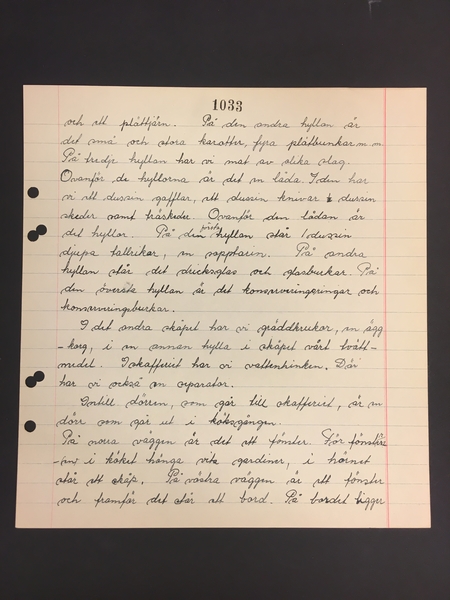 1033
och ett plättjärn. På den andra hyllan är
det små och stora karotter, fyra plåtbunkar m.m.
På tredje hyllan har vi mat av olika slag.
Ovanför de hyllorna är det en låda. I den har
vi ett dussin gafflar, ett dussin knivar 1 dussin
skedar samt träskedar. Ovanför den lådan är
det hyllor. På den första hyllan står 1 dussin
djupa tallrikar, en sopptarin. På andra
hyllan står det dricksglas och glasburkar. På
den översta hyllan är det konserveringsringar och
konserveringsburkar.
I det andra skåpet har vi gräddkrukor, en ägg
-korg, i en annan hylla i skåpet vårt tvätt-
medel. I skafferiet har vi vattenhinken. Där
har vi också en separator.
Intill dörren, som går till skafferiet, är en
dörr som går ut i köksgången.
På norra väggen är det ett fönster. För fönstere
i köket hänga vita gardiner, i hörnet
står ett skåp. På västra väggen är ett fönster
och framför det står ett bord. På bordet ligger